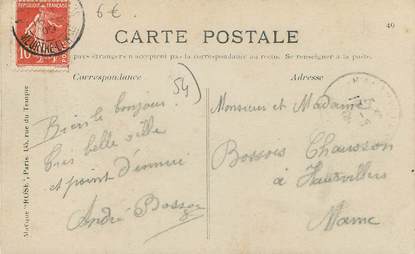 6 €
CARTE POSTALE
49
pays étrangers n'acceptent pas la correspondance au recto. Se renseigner à la poste.
Correspondance
Adresse
54
Bien le bonjour
très belle ville
et point d'ennui
André Bosson
Monsieur et Madame
Bossois Chausson
à Hautvillers
Marne
Marque "ROSE", Paris, 145, rue du Temple
10